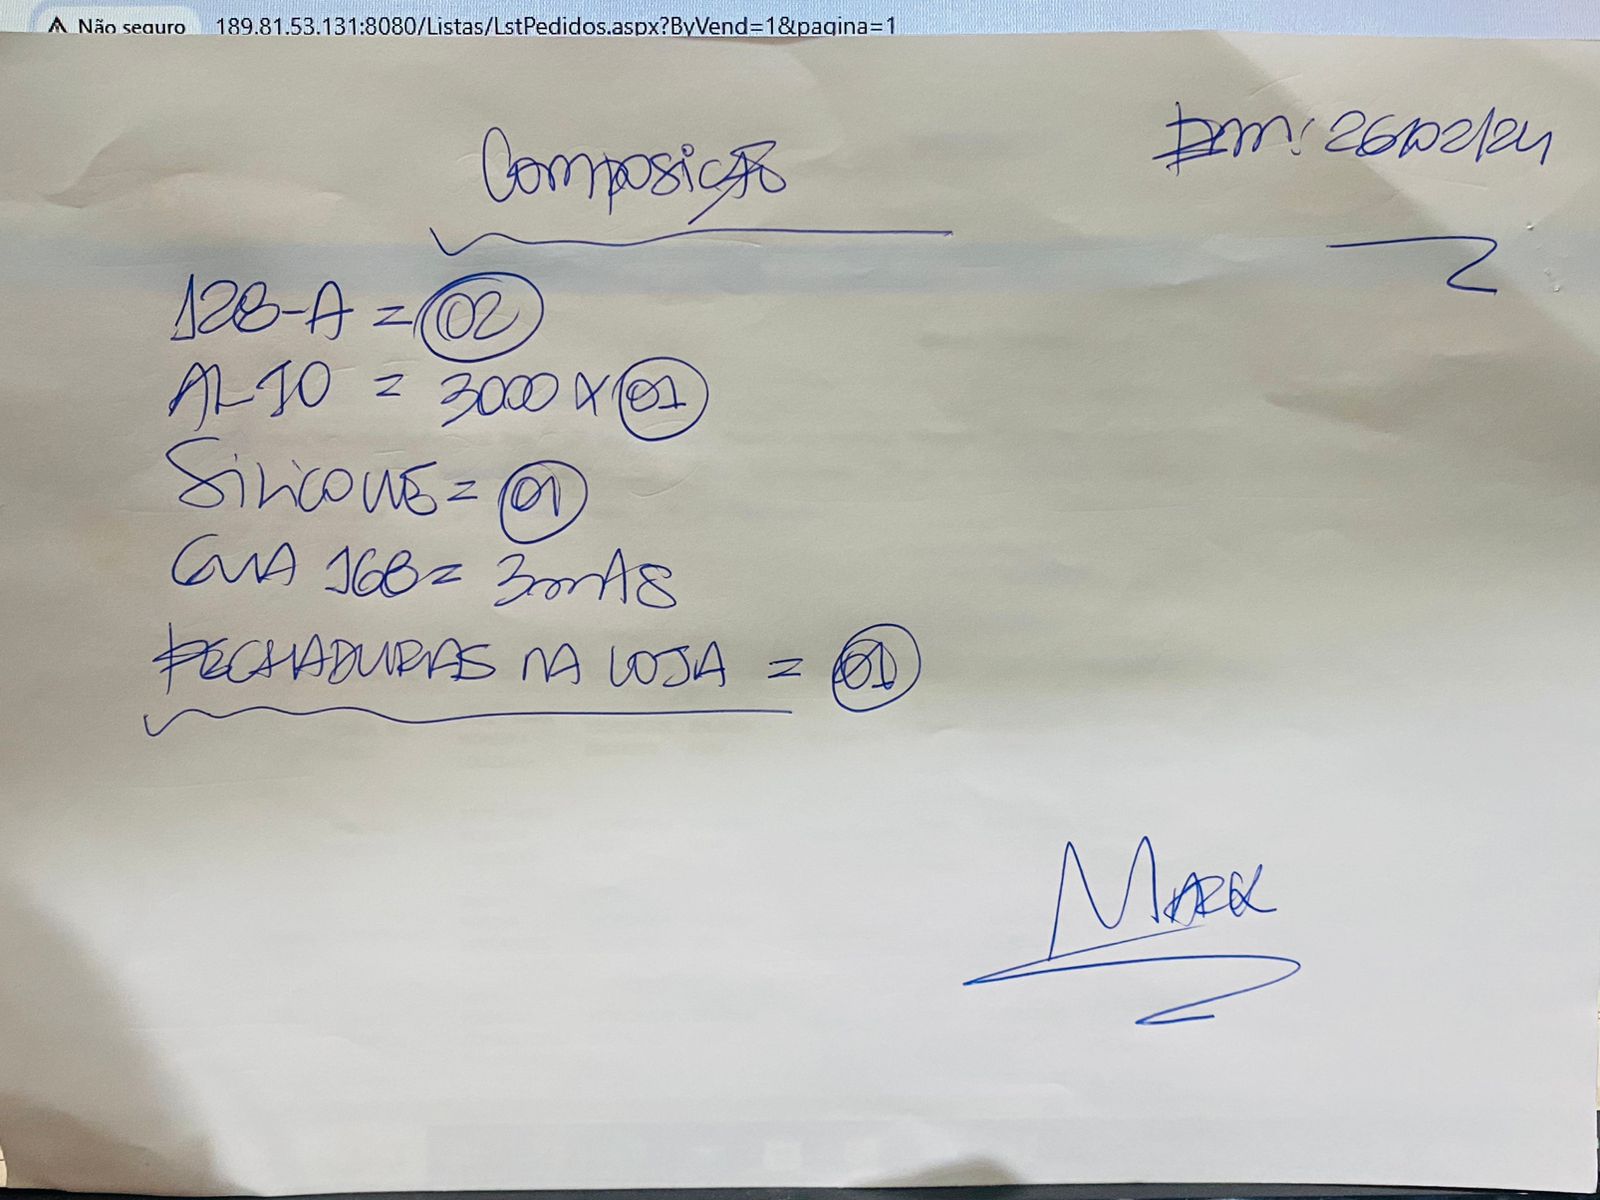 Não seguro 189.81.53.131:8080/Listas/LstPedidos.aspx?ByVend=1&pagina=1
Em: 26/02/24
Composição
128-A = 02
AL 10 = 3000 X 01
Silicone = 01
168 =
FECHADURAS NA LOJA = 01
MARX